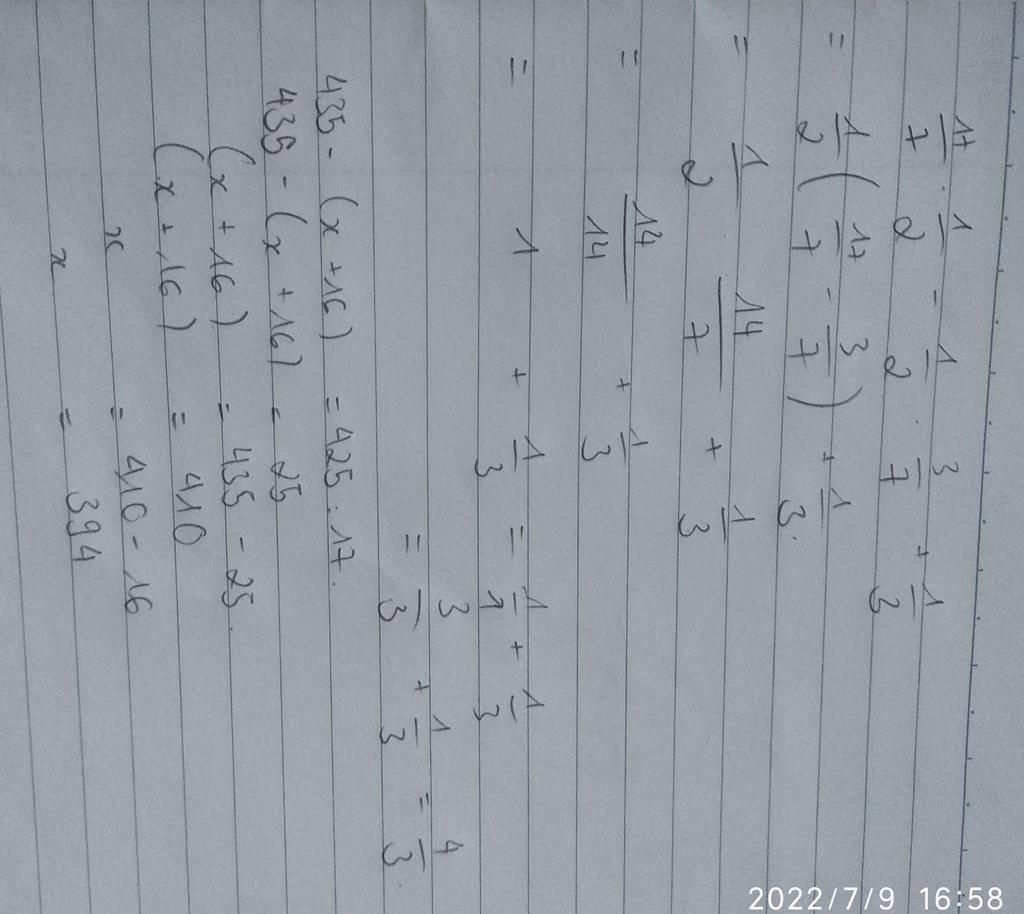 17/7 · 1/2 - 1/2 · 3/7 + 1/3
= 1/2 ( 17/7 - 3/7 ) + 1/3.
= 1/2 14/7 + 1/3
= 14/14 + 1/3
= 1 + 1/3 = 1/1 + 1/3
= 3/3 + 1/3 = 4/3.
435 - (x + 16) = 425 : 17.
435 - (x + 16) = 25
(x + 16) = 435 - 25.
(x + 16) = 410
x = 410 - 16
x = 394
2022/7/9 16:58